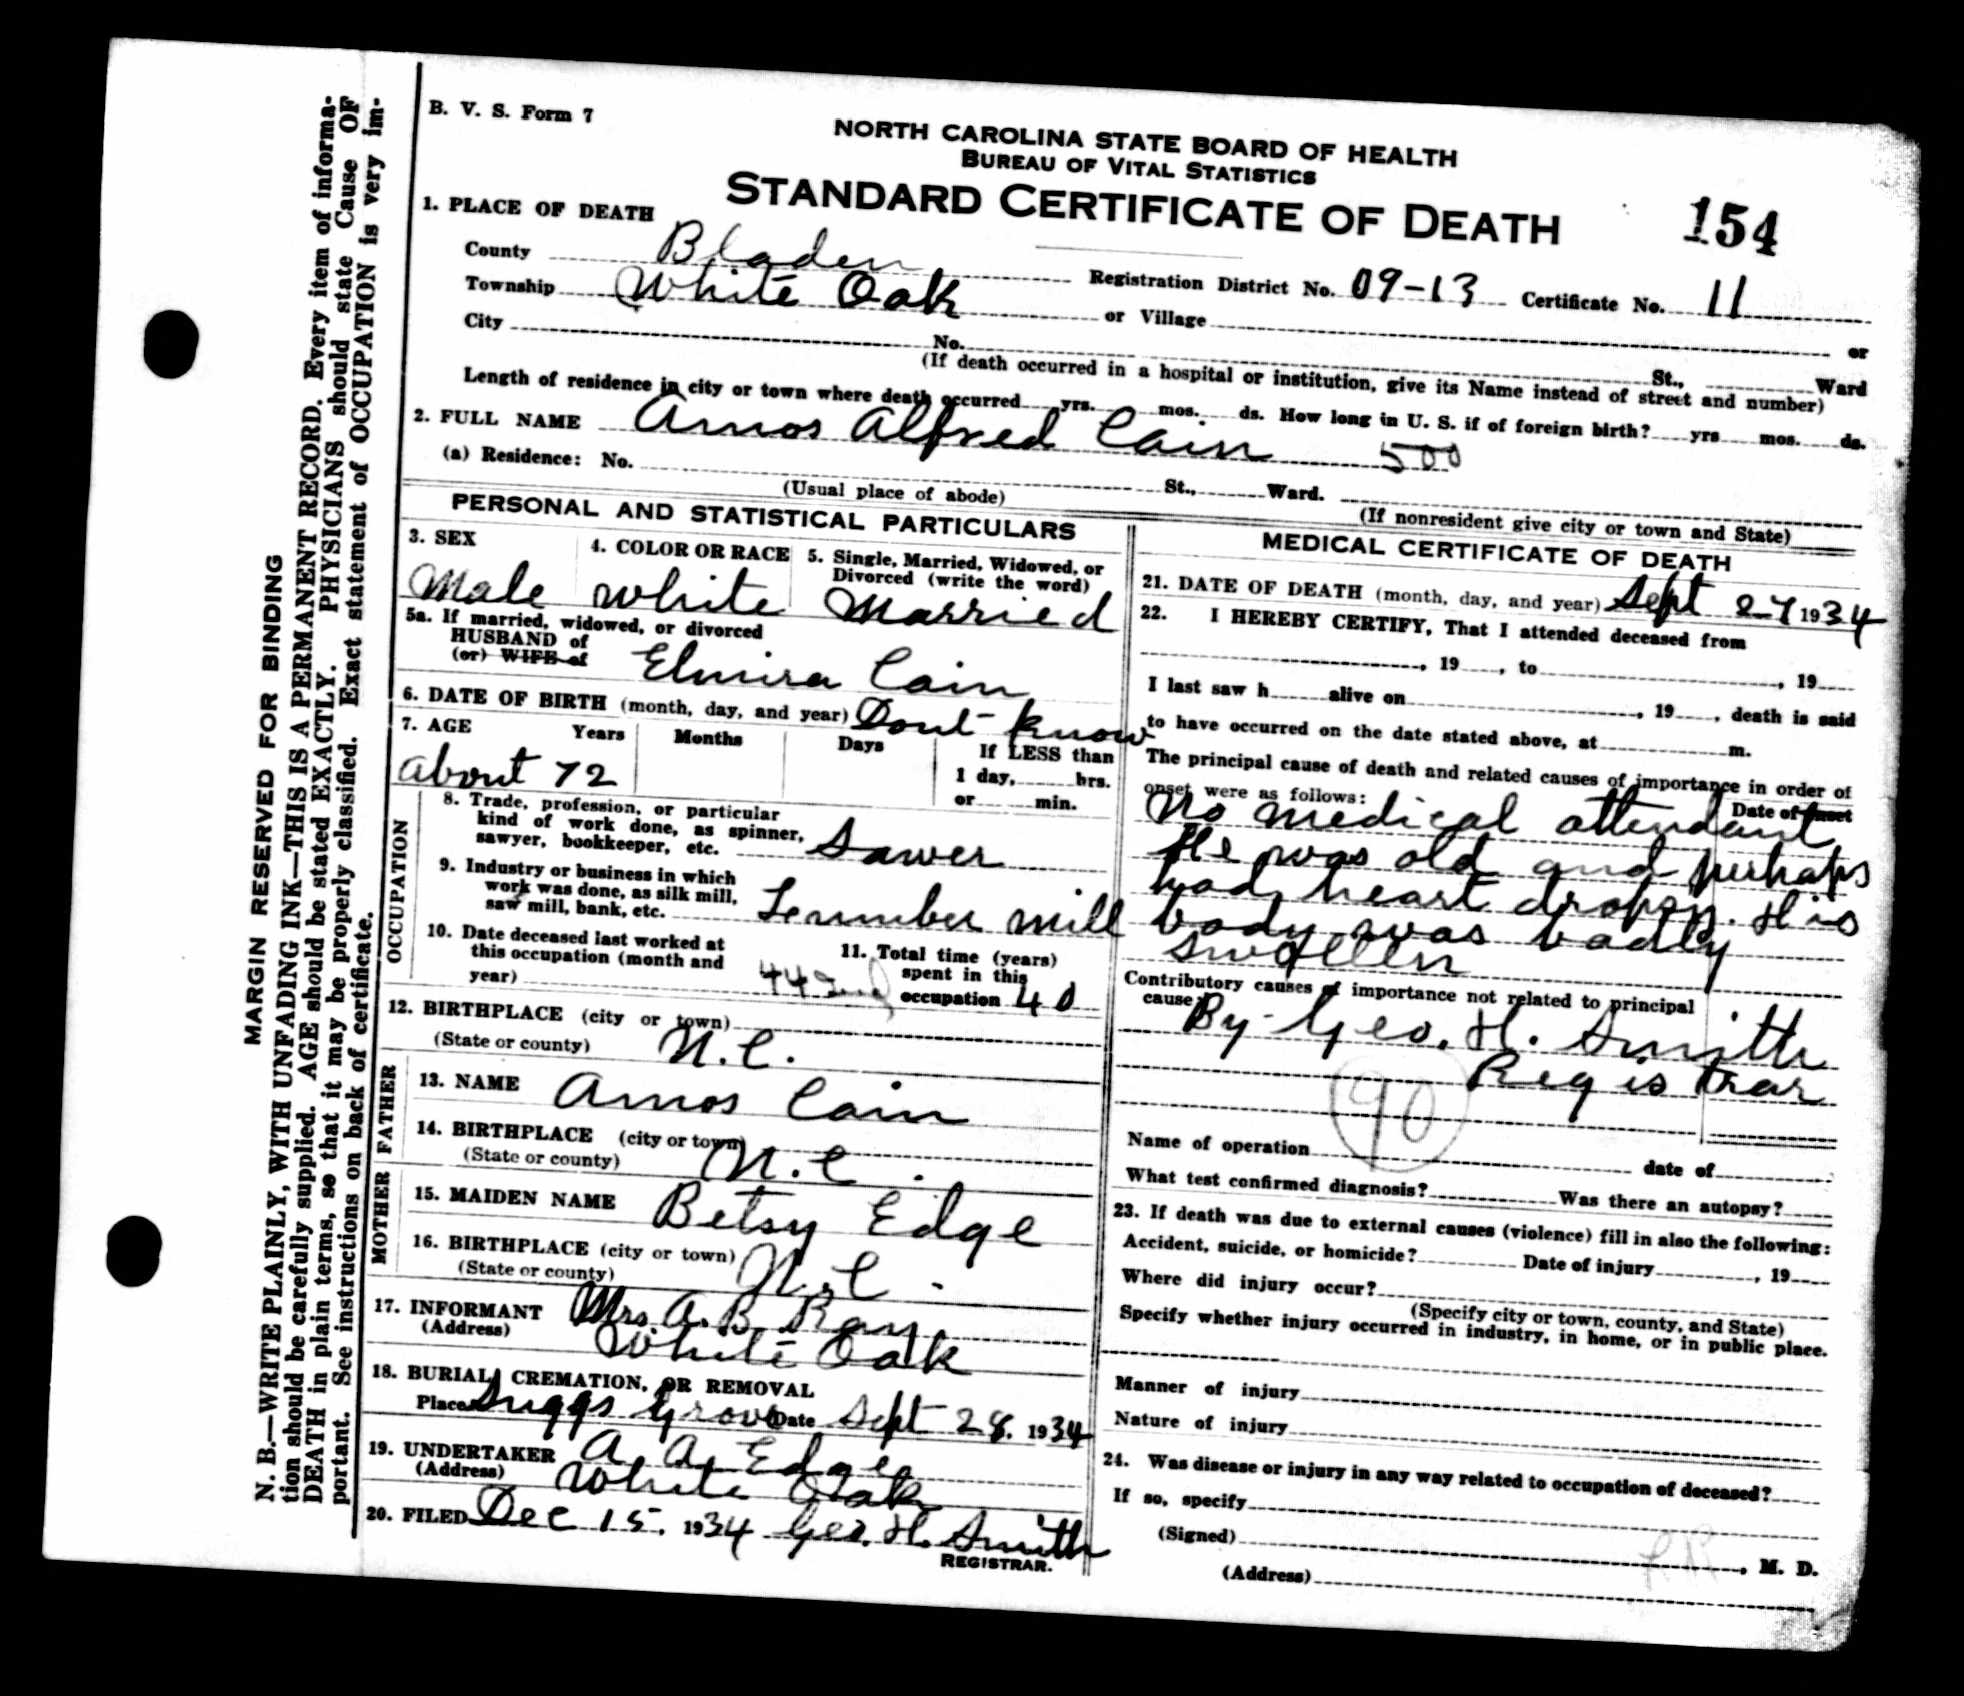 B. V. S. Form 7
NORTH CAROLINA STATE BOARD OF HEALTH
BUREAU OF VITAL STATISTICS
STANDARD CERTIFICATE OF DEATH
154
1. PLACE OF DEATH
County Bladen Registration District No. 09-13 Certificate No. 11
Township White Oak or Village or
City No. St., Ward
(If death occurred in a hospital or institution, give its Name instead of street and number)
Length of residence in city or town where death occurred yrs. mos. ds. How long in U. S. if of foreign birth? yrs mos. ds.
2. FULL NAME Amos Alfred Cain 500
(a) Residence: No. St., Ward.
(Usual place of abode) (If nonresident give city or town and State)
PERSONAL AND STATISTICAL PARTICULARS
3. SEX 4. COLOR OR RACE 5. Single, Married, Widowed, or
Divorced (write the word)
Male White Married
5a. If married, widowed, or divorced
HUSBAND of
(or) WIFE of Elmira Cain
6. DATE OF BIRTH (month, day, and year) Dont know
7. AGE Years Months Days If LESS than
1 day, hrs.
or min.
about 72
OCCUPATION
8. Trade, profession, or particular
kind of work done, as spinner,
sawyer, bookkeeper, etc. Sawer
9. Industry or business in which
work was done, as silk mill,
saw mill, bank, etc. Lumber mill
10. Date deceased last worked at
this occupation (month and
year)
11. Total time (years)
spent in this
occupation 40
12. BIRTHPLACE (city or town)
(State or county) N.C.
FATHER
13. NAME Amos Cain
14. BIRTHPLACE (city or town)
(State or county) N.C.
MOTHER
15. MAIDEN NAME Betsy Edge
16. BIRTHPLACE (city or town)
(State or county) N.C.
17. INFORMANT Mrs A. B. Ray
(Address) White Oak
18. BURIAL, CREMATION, OR REMOVAL
Place Suggs Grove Date Sept 28. 1934
19. UNDERTAKER A. A. Edge
(Address) White Oak
20. FILED Dec 15, 1934 Geo. H. Smith
REGISTRAR.
MEDICAL CERTIFICATE OF DEATH
21. DATE OF DEATH (month, day, and year) Sept 27 1934
22. I HEREBY CERTIFY, That I attended deceased from
, 19 , to , 19
I last saw h alive on , 19 , death is said
to have occurred on the date stated above, at m.
The principal cause of death and related causes of importance in order of
onset were as follows: Date of onset
No medical attendant
He was old and perhaps
had heart dropsy. His
body was badly
swollen
Contributory causes of importance not related to principal
cause:
By Geo. H. Smith
Registrar
90
Name of operation date of
What test confirmed diagnosis? Was there an autopsy?
23. If death was due to external causes (violence) fill in also the following:
Accident, suicide, or homicide? Date of injury , 19
Where did injury occur?
(Specify city or town, county, and State)
Specify whether injury occurred in industry, in home, or in public place.
Manner of injury
Nature of injury
24. Was disease or injury in any way related to occupation of deceased?
If so, specify
(Signed) , M. D.
(Address)
MARGIN RESERVED FOR BINDING
N. B.—WRITE PLAINLY, WITH UNFADING INK—THIS IS A PERMANENT RECORD. Every item of informa-
tion should be carefully supplied. AGE should be stated EXACTLY. PHYSICIANS should state Cause OF
DEATH in plain terms, so that it may be properly classified. Exact statement of OCCUPATION is very im-
portant. See instructions on back of certificate.